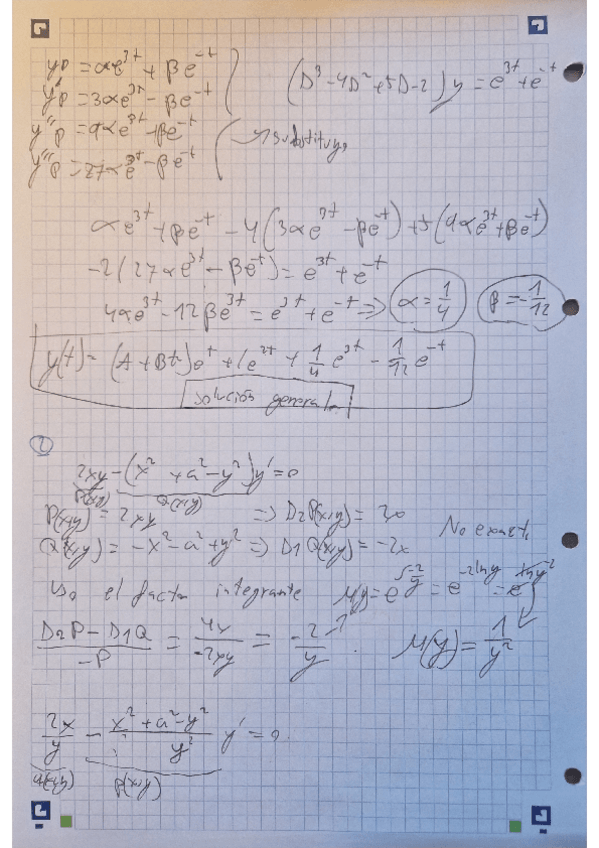 yp = αe^3t + βe^-t
y'p = 3αe^3t - βe^-t
y''p = 9αe^3t + βe^-t
y'''p = 27αe^3t - βe^-t
(D³ - 4D² + 5D - 2) y = e^3t + e^-t
→ substituyo
αe^3t + βe^-t - 4(3αe^3t - βe^-t) + 5(9αe^3t + βe^-t)
-2(27αe^3t - βe^-t) = e^3t + e^-t
4αe^3t - 12βe^3t = e^3t + e^-t ⇒ α = 1/4 β = -1/12
y(t) = (A + Bt)e^t + Ce^2t + 1/4 e^3t - 1/12 e^-t
solución general
2
2xy - (x² + a² - y²)y' = 0
P(x,y) Q(x,y)
P(x,y) = 2xy ⇒ D2P(x,y) = 2x
Q(x,y) = -x² - a² + y² ⇒ D1Q(x,y) = -2x
No exacta
Uso el factor integrante μ(y) = e^∫-2/y = e^-2lny = e^lny^-2
(D2P - D1Q)/-P = 4x/-2xy = -2/y . μ(y) = 1/y²
2x/y - (x² + a² - y²)/y² y' = 0.
p(x,y)